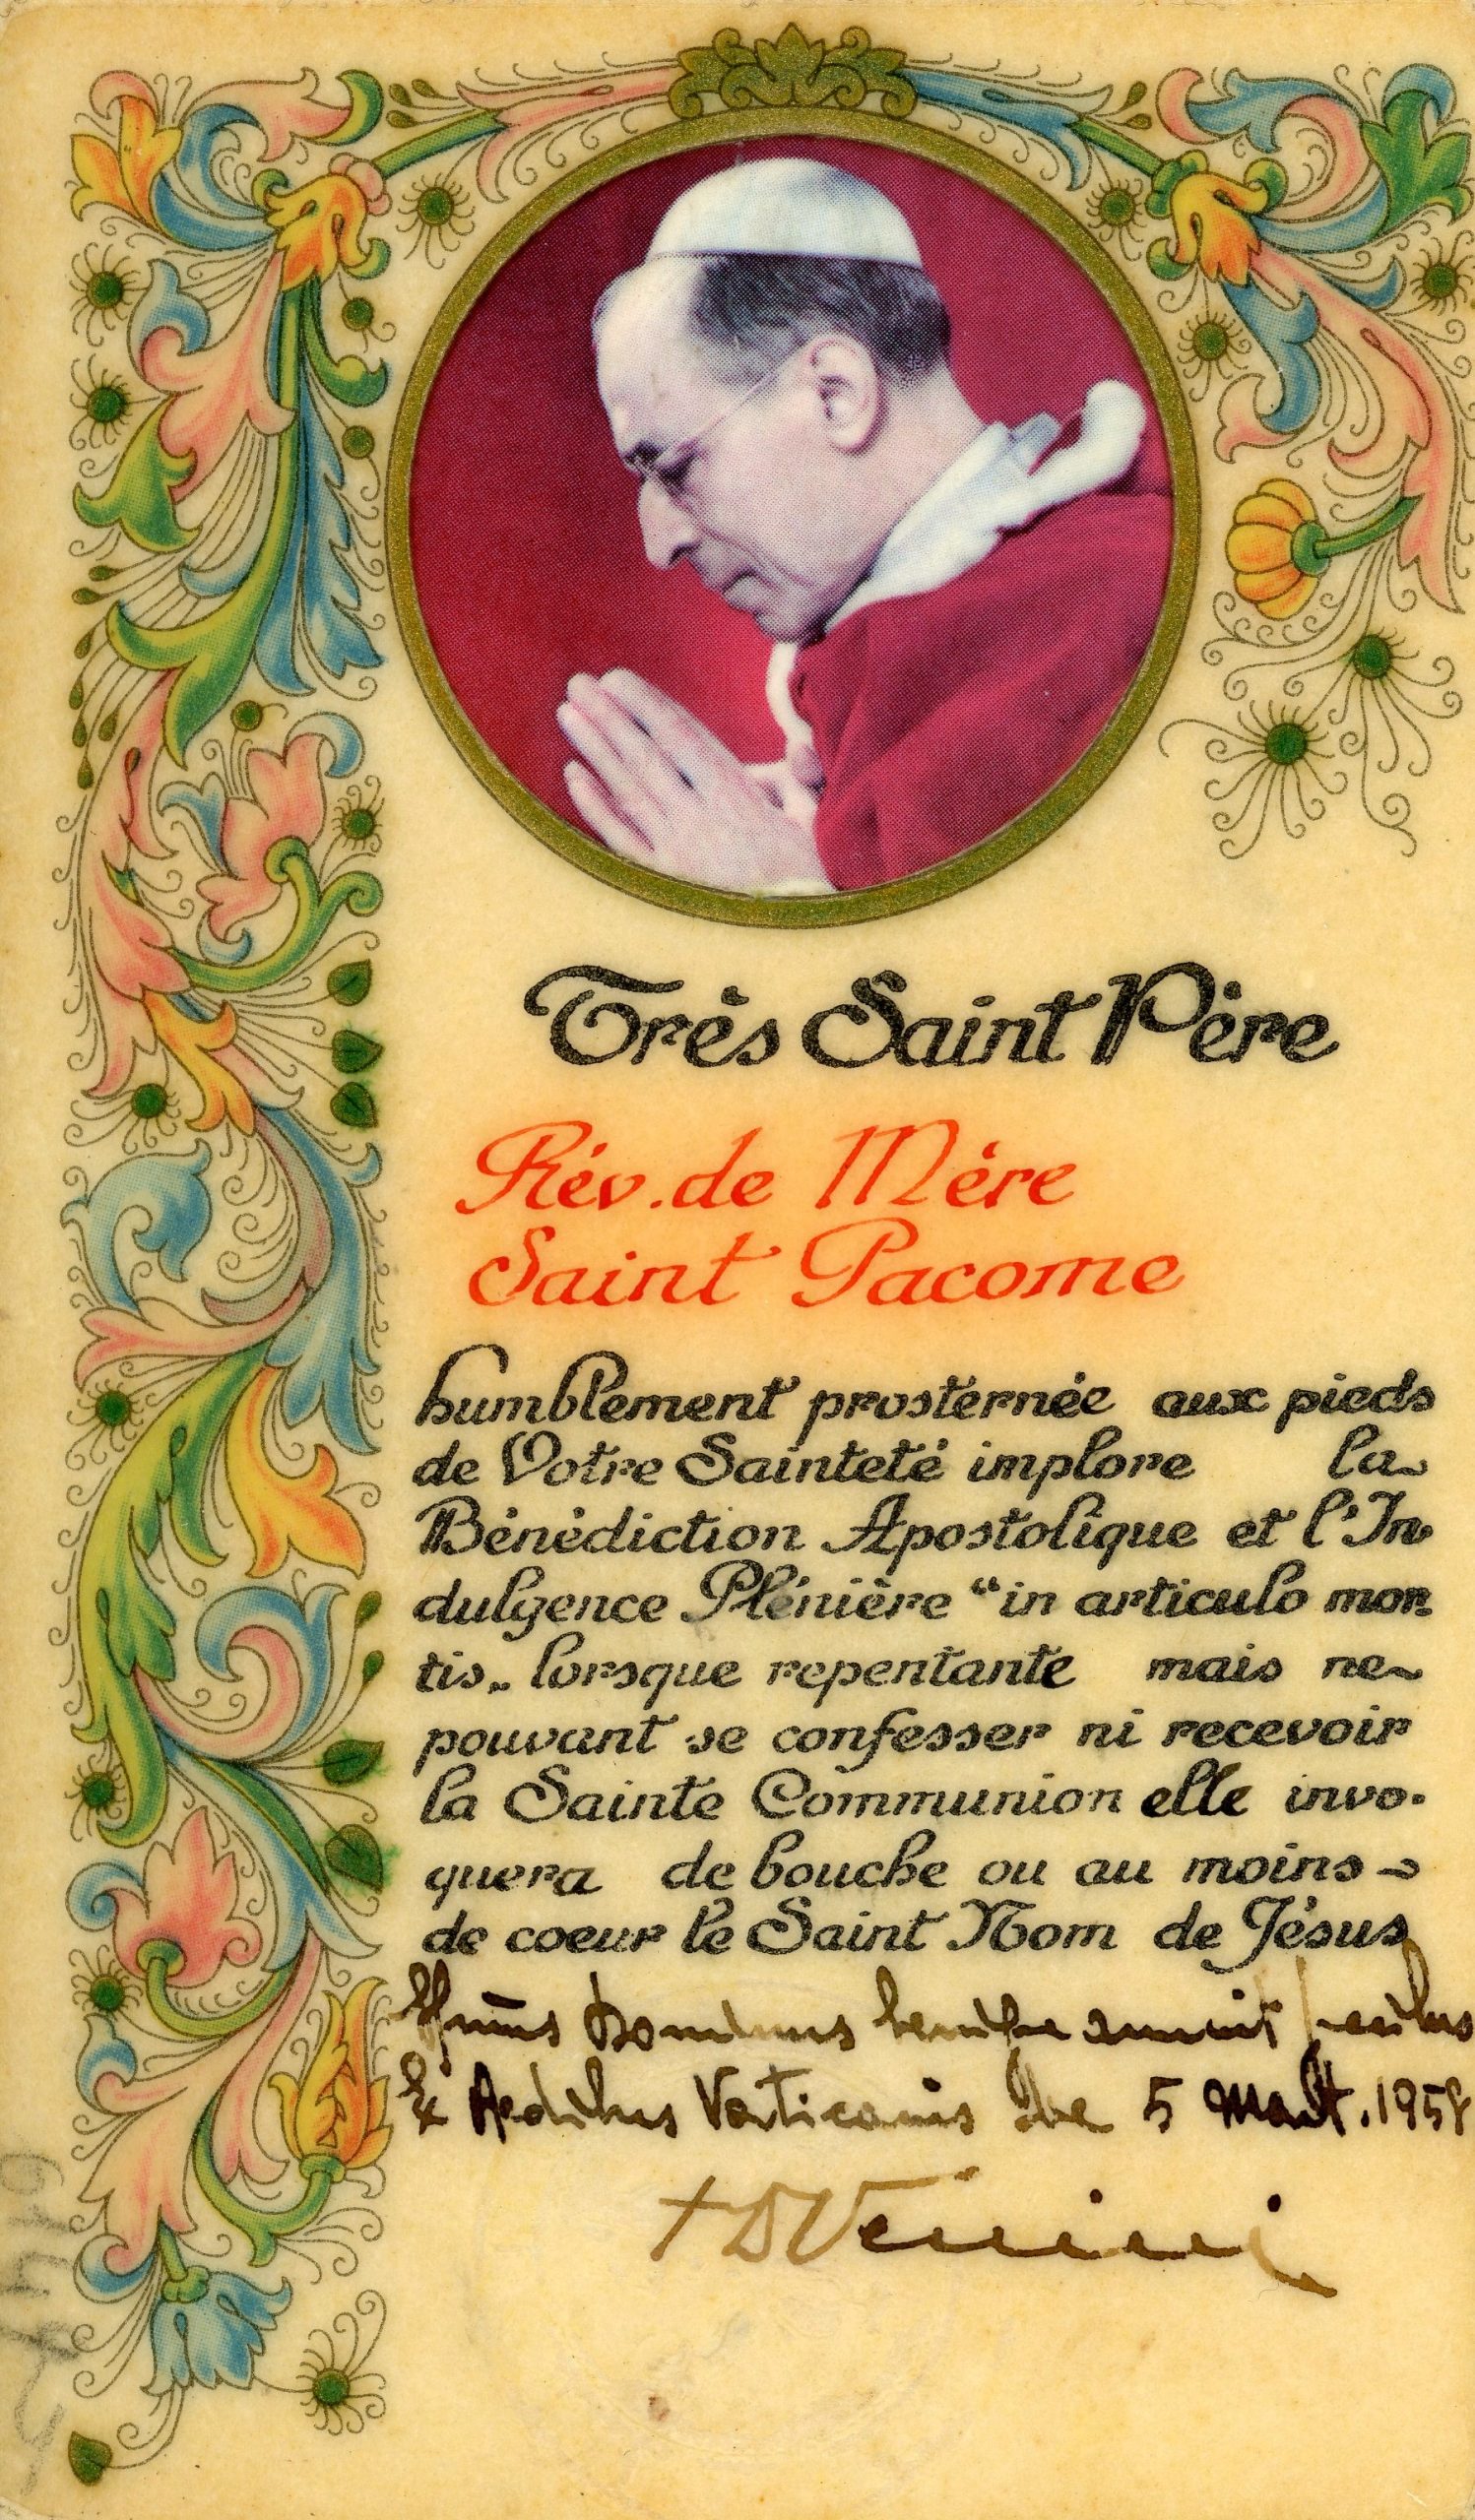 Très Saint Père
Rév. de Mère
Saint Pacome
humblement prosternée aux pieds
de Votre Sainteté implore la
Bénédiction Apostolique et l'In
dulgence Plénière “in articulo mor
tis„ lorsque repentante mais ne
pouvant se confesser ni recevoir
la Sainte Communion elle invo-
quera de bouche ou au moins
de coeur le Saint Nom de Jésus
benigne annuit precibus
Ex Aedibus Vaticanis die 5 Maii. 1958